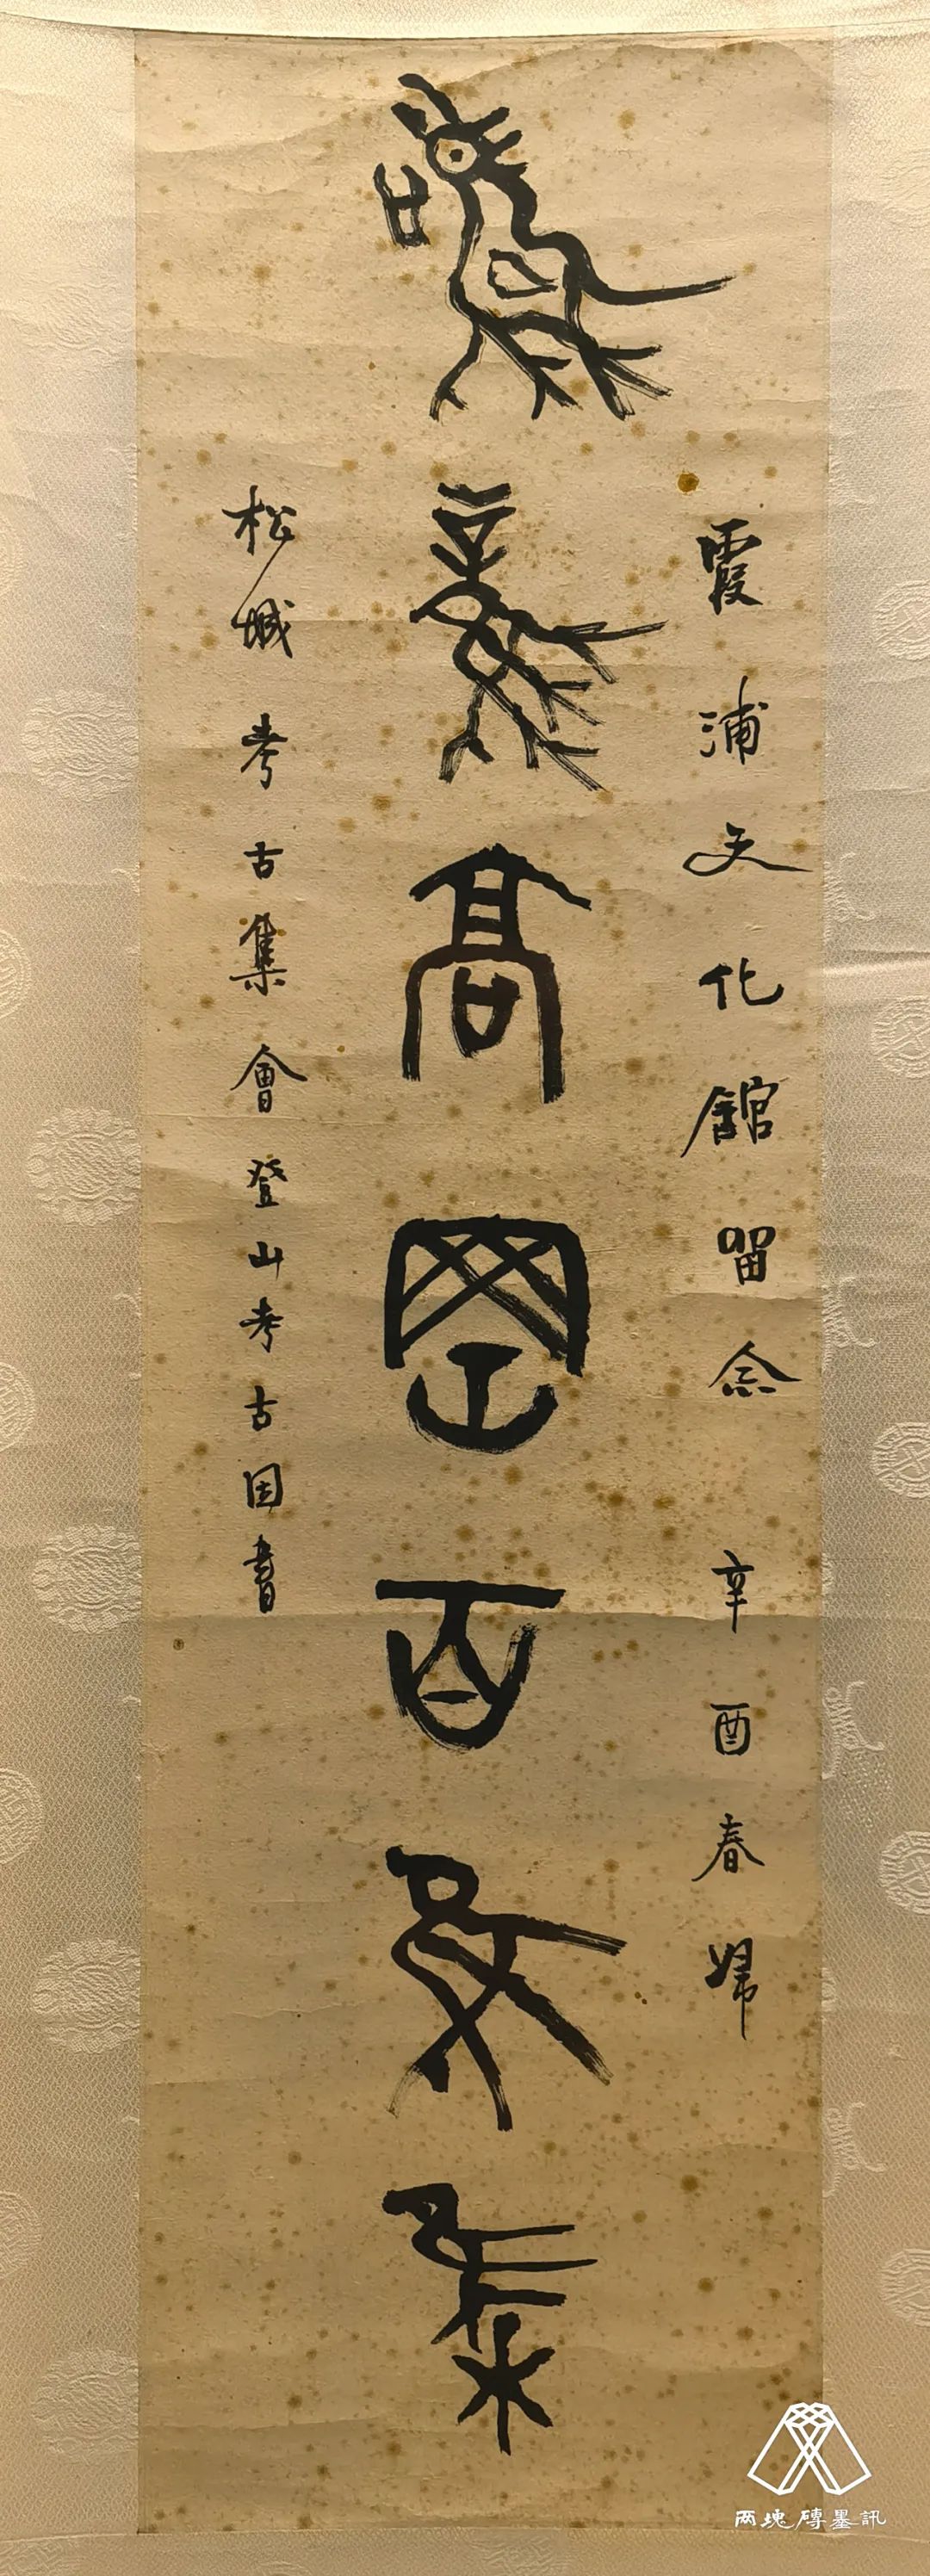 鳴鳳高岡百鳥集
霞浦文化館留念 辛酉春歸
松城考古集會登山考古因書
两塊磚墨訊